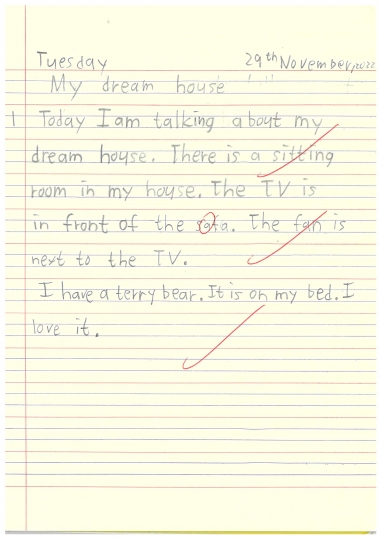 Tuesday 29th November, 2022
My dream house
1 Today I am talking about my
dream house. There is a sitting
room in my house. The TV is
in front of the sofa. The fan is
next to the TV.
I have a terry bear. It is on my bed. I
love it.